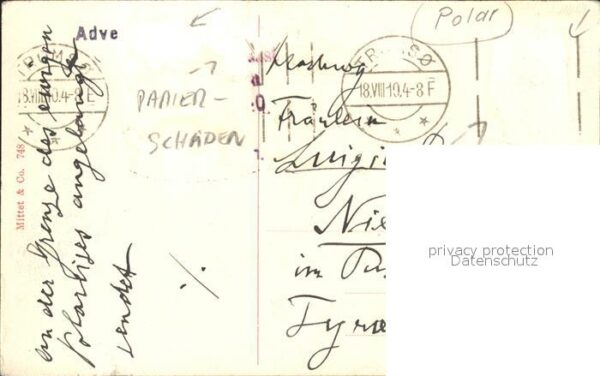 Adve
Polar
TROMSØ
18.VIII.10.4-8 F
18.VIII.10.4-8 E
PAPIER-
SCHÄDEN
Mittet & Co. 748
an der Grenze des ewigen
Polareises angelangt
sendet
Fräulein
Luigi
Nie
im Pu
Tyro
privacy protection
Datenschutz